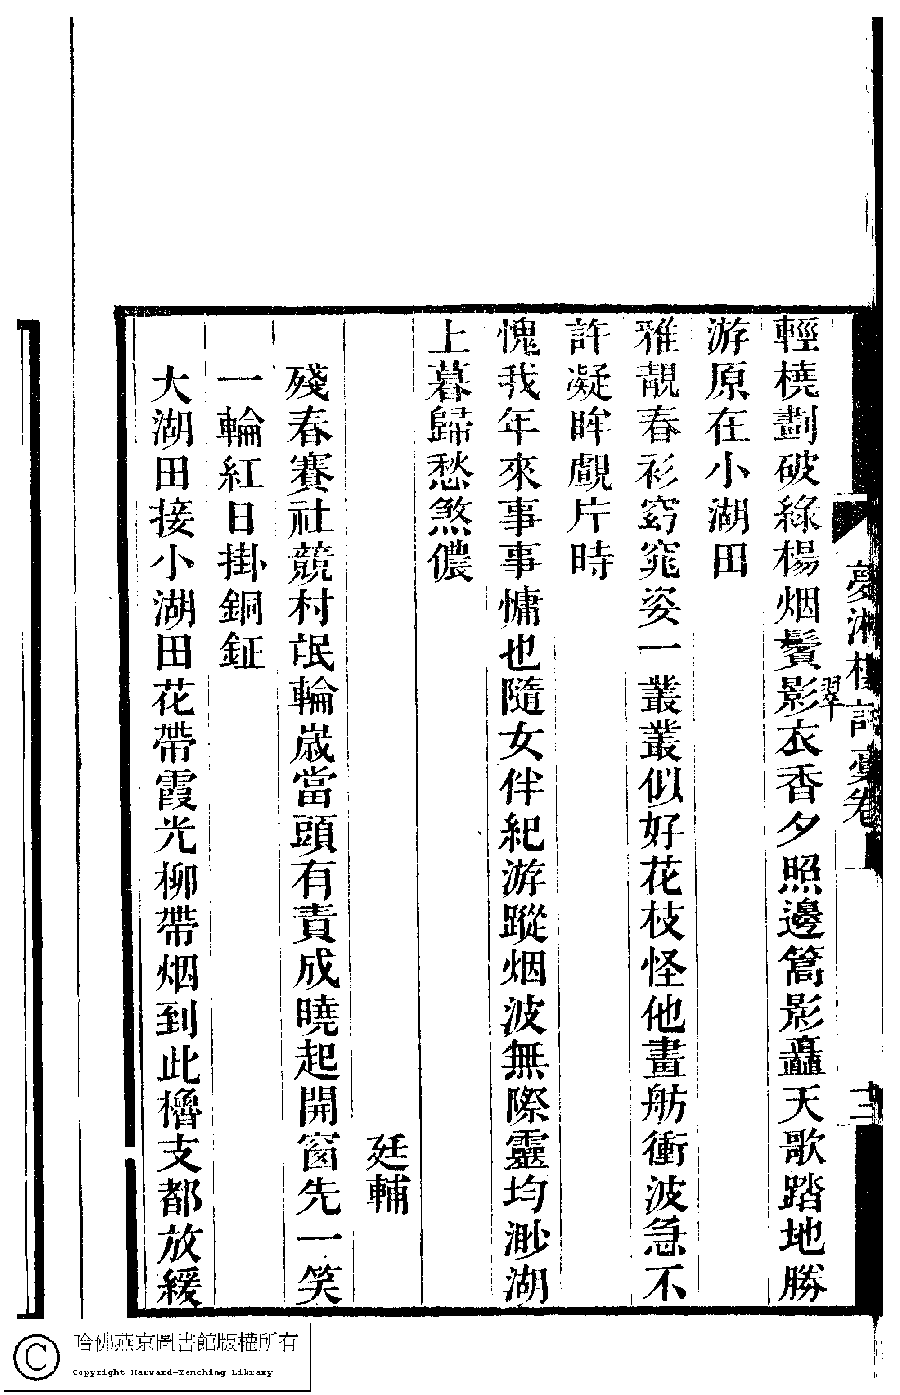 夢湘樓詩稾卷一
十二
輕橈劃破綠楊烟鬢影衣香夕照邊篙影矗天歌踏地勝
翠
游原在小湖田
雅靚春衫窈窕姿一叢叢似好花枝怪他畫舫衝波急不
許凝眸覷片時
愧我年來事事慵也隨女伴紀游蹤烟波無際靈均渺湖
上暮歸愁煞儂
廷輔
殘春賽社競村氓輪歲當頭有責成曉起開窗先一笑
一輪紅日掛銅鉦
大湖田接小湖田花帶霞光柳帶烟到此櫓支都放緩
哈佛燕京圖書館版權所有
Copyright Harvard-Yenching Library